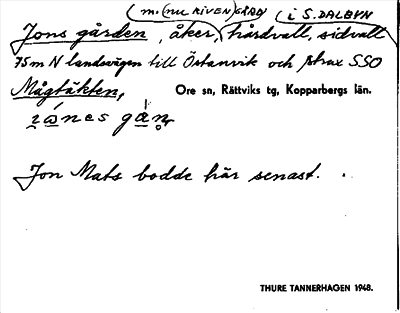 m. (nu RIVEN) GÅRD (i S. DALBYN
Jons gården, åker, hårdvall, sidvall
75 m N landsvägen till Östanvik och strax SSO
Mågtäkten, Ore sn, Rättviks tg, Kopparbergs län.
Jon Mats bodde här senast.
THURE TANNERHAGEN 1948.